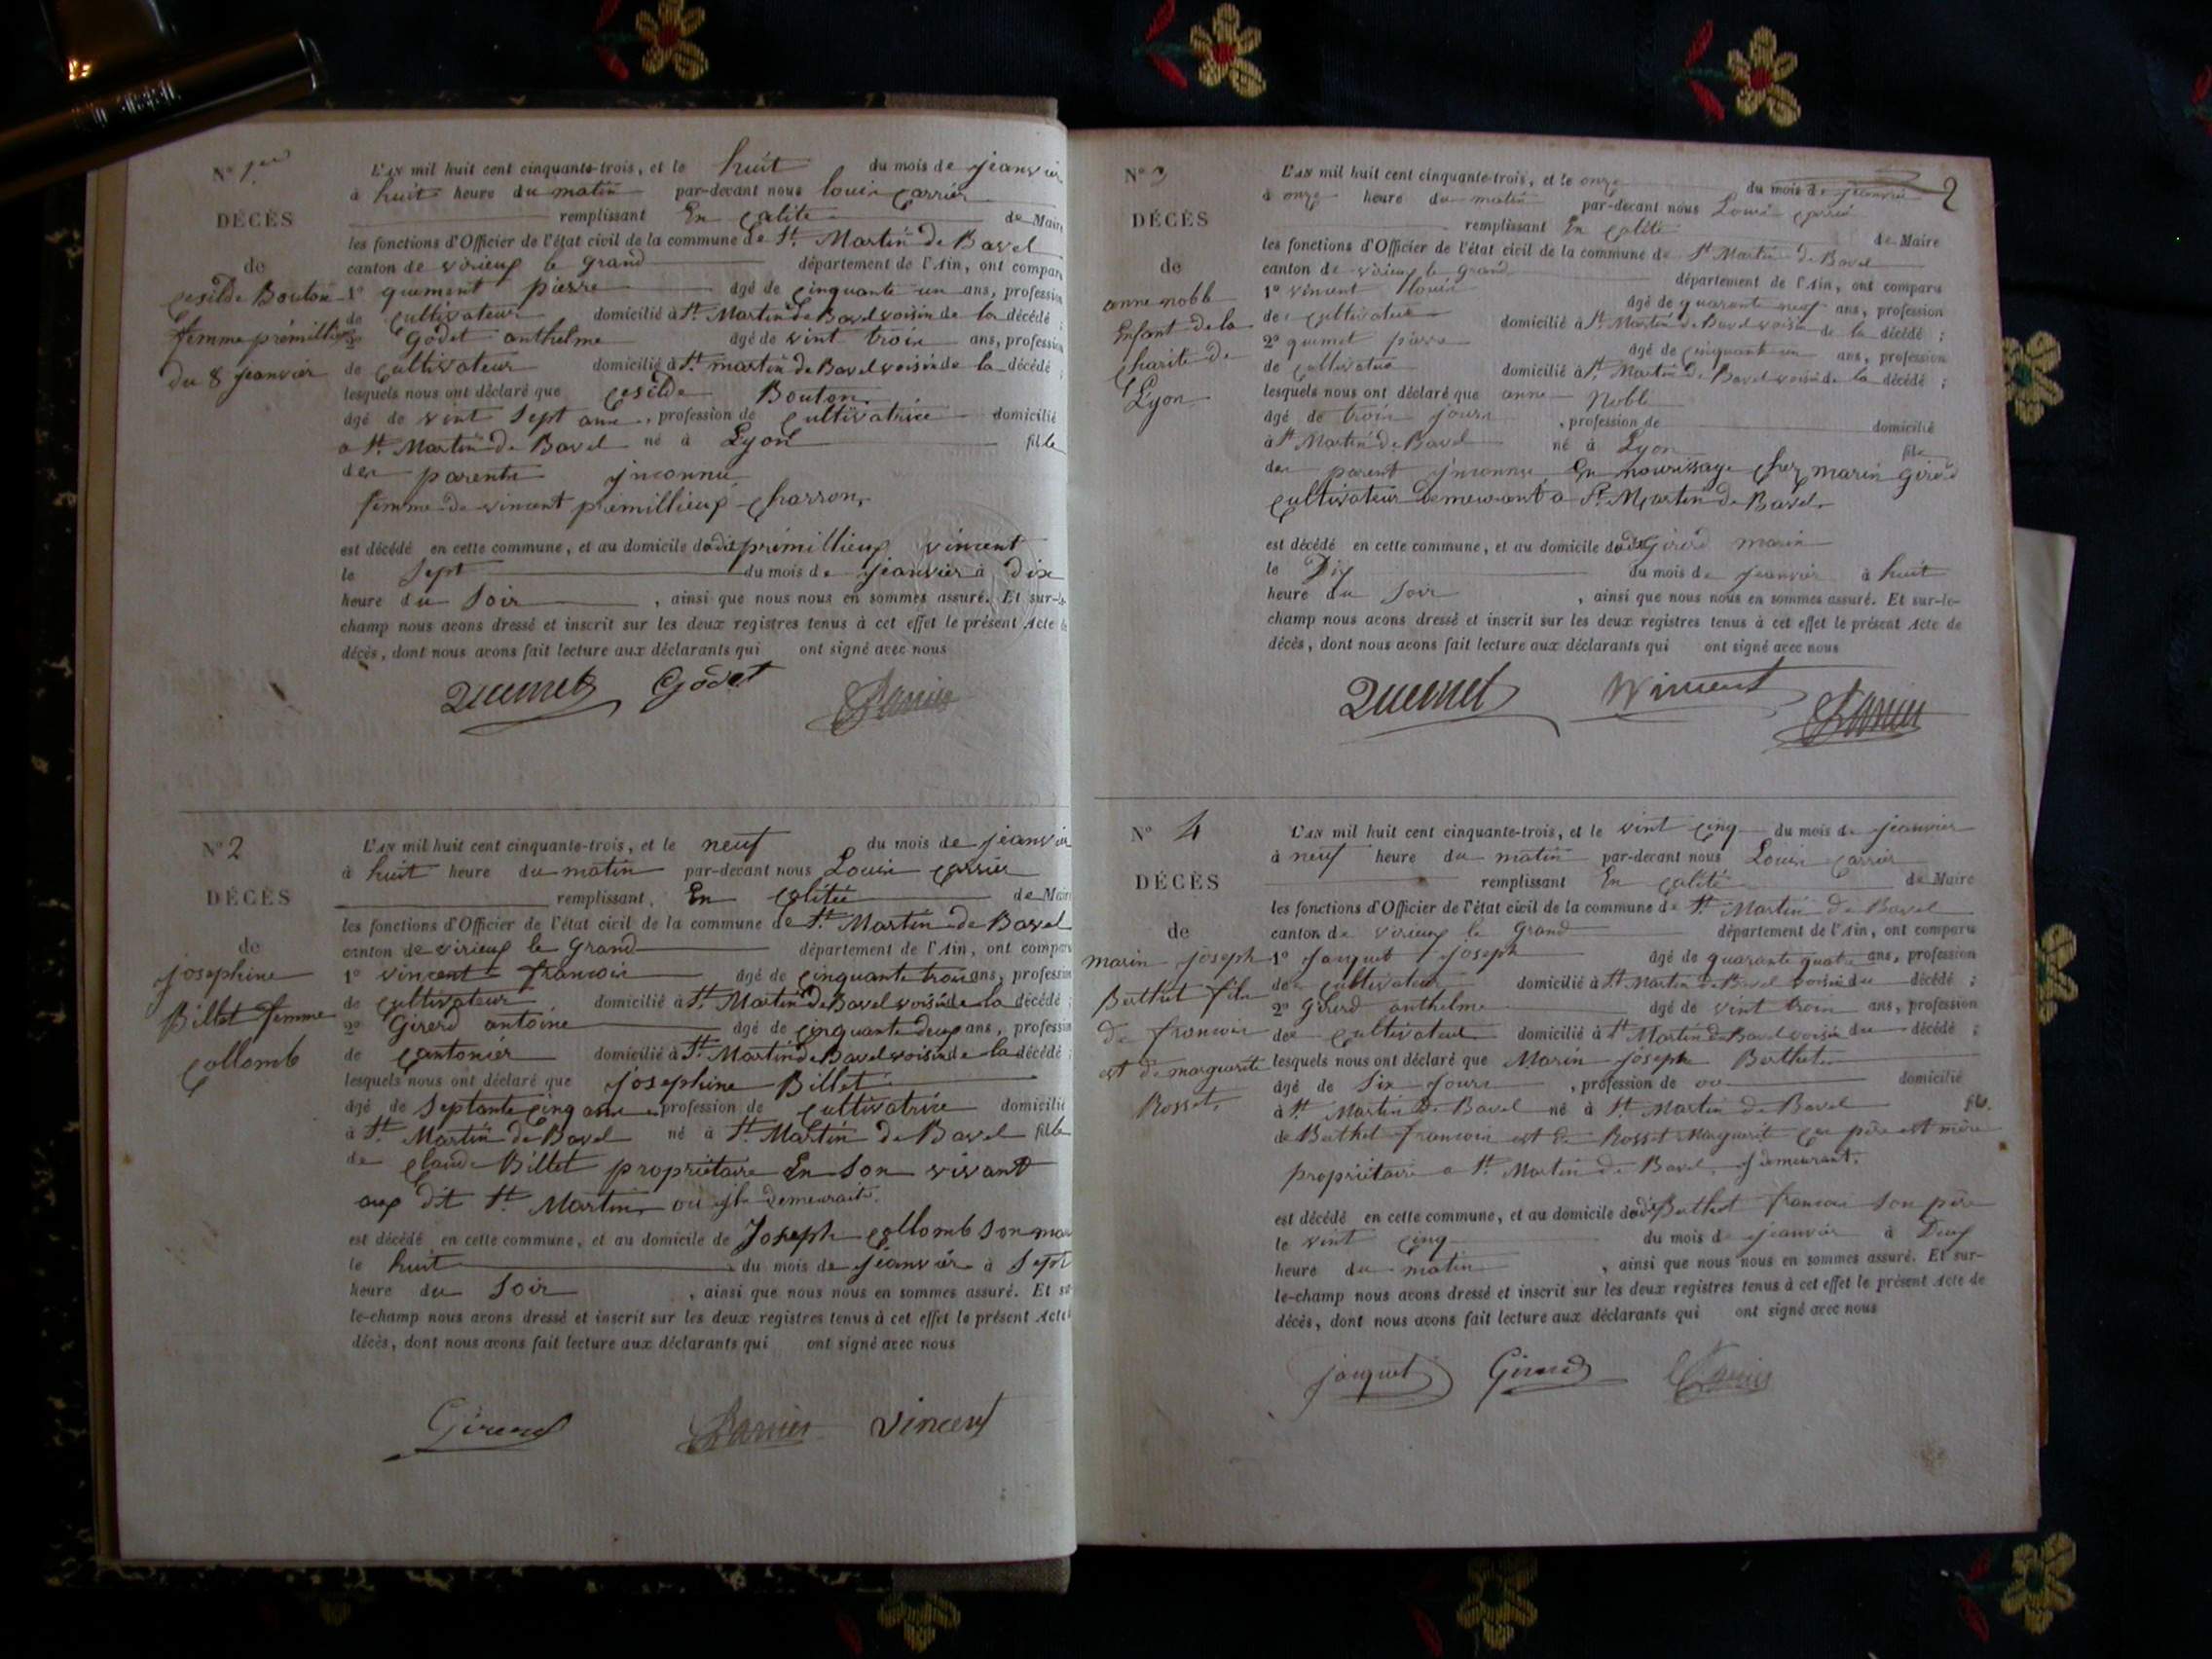 N° 1er
DÉCÈS
de
Cesilde Bouton
femme prémillieux
du 8 jeanvier
L'AN mil huit cent cinquante-trois, et le huit du mois de jeanvier
à huit heure du matin par-devant nous louis Carrier
remplissant En Calité de Maire
les fonctions d'Officier de l'état civil de la commune de St. Martin de Bavel
canton de virieux le grand département de l'Ain, ont comparu
1° quement pierre âgé de Cinquante un ans, profession
de Cultivateur domicilié à St. Martin de Bavel voisin de la décédé ;
2° Godet anthelme âgé de vint trois ans, profession
de Cultivateur domicilié à St. martin de Bavel voisin de la décédé ;
lesquels nous ont déclaré que Cesilde Bouton
âgé de vint Sept ans, profession de Cultivatrice domicilié
a St. Martin de Bavel né à Lyon fille
des parents jnconnu
femme de vincent prémillieux Charron,
est décédé en cette commune, et au domicile du dit prémillieux vincent
le Sept du mois de jeanvier à dix
heure du Soir, ainsi que nous nous en sommes assuré. Et sur-le-
champ nous avons dressé et inscrit sur les deux registres tenus à cet effet le présent Acte de
décès, dont nous avons fait lecture aux déclarants qui ont signé avec nous
Quemet Godet Carrier
N° 2
DÉCÈS
de
josephine
Billet femme
Collomb
L'AN mil huit cent cinquante-trois, et le neuf du mois de jeanvier
à huit heure du matin par-devant nous Louis Carrier
remplissant En Calitée de Maire
les fonctions d'Officier de l'état civil de la commune de St. Martin de Bavel
canton de virieux le Grand département de l'Ain, ont comparu
1° vincent francois âgé de Cinquante trois ans, profession
de Cultivateur domicilié à St. Martin de Bavel voisin de la décédé ;
2° Girerd antoine âgé de Cinquante deux ans, profession
de Cantonier domicilié à St. Martin de Bavel voisin de la décédé ;
lesquels nous ont déclaré que josephine Billet
âgé de Septante Cinq ans profession de Cultivatrice domicilié
à St. Martin de Bavel né à St. Martin de Bavel fille
de Claude Billet propriétaire En Son vivant
aux dit St. Martin ou jl demeurait.
est décédé en cette commune, et au domicile de Joseph Collomb Son mari
le huit du mois de jeanvier à Sept
heure du Soir, ainsi que nous nous en sommes assuré. Et sur-
le-champ nous avons dressé et inscrit sur les deux registres tenus à cet effet le présent Acte
décès, dont nous avons fait lecture aux déclarants qui ont signé avec nous
Girerd Carrier vincent
2
N° 3
DÉCÈS
de
anne noble
Enfant de la
Charité de
Lyon
L'AN mil huit cent cinquante-trois, et le onze du mois de jeanvier
à onze heure du matin par-devant nous Louis Carrier
remplissant En Calité de Maire
les fonctions d'Officier de l'état civil de la commune de St Martin de Bavel
canton de virieux le grand département de l'Ain, ont comparu
1° vincent louis âgé de quarante neuf ans, profession
de Cultivateur domicilié à St. Martin de Bavel voisin de la décédé ;
2° quemet pierre âgé de Cinquante un ans, profession
de Cultivateur domicilié à St. Martin de Bavel voisin de la décédé ;
lesquels nous ont déclaré que anne Noble
âgé de trois jours, profession de domicilié
à St Martin de Bavel né à Lyon fille
des parent jnconnu En nourissage Chez marin Girerd
Cultivateur demeurant a St. Martin de Bavel.
est décédé en cette commune, et au domicile du dit Girerd marin
le Dix du mois de jeanvier à huit
heure du Soir, ainsi que nous nous en sommes assuré. Et sur-le-
champ nous avons dressé et inscrit sur les deux registres tenus à cet effet le présent Acte de
décès, dont nous avons fait lecture aux déclarants qui ont signé avec nous
Quemet Vincent Carrier
N° 4
DÉCÈS
de
marin joseph
Berthet fils
de francois
est de marguerite
Rosset,
L'AN mil huit cent cinquante-trois, et le vint Cinq du mois de jeanvier
à neuf heure du matin par-devant nous Louis Carrier
remplissant En Calité de Maire
les fonctions d'Officier de l'état civil de la commune de St. Martin de Bavel
canton de virieux le Grand département de l'Ain, ont comparu
1° Jacquet joseph âgé de quarante quatre ans, profession
de Cultivateur domicilié à St Martin de Bavel voisin du décédé ;
2° Girerd anthelme âgé de vint trois ans, profession
de Cultivateur domicilié à St Martin de Bavel voisin du décédé ;
lesquels nous ont déclaré que Marin joseph Berthet
âgé de Six Jours, profession de domicilié
à St. Martin de Bavel né à St Martin de Bavel fils
de Berthet francois est de Rosset Marguerite Ces père est mère
propriétaire a St. Martin de Bavel, y demeurant.
est décédé en cette commune, et au domicile du dit Berthet francois Son père
le vint Cinq du mois de jeanvier à Deux
heure du matin, ainsi que nous nous en sommes assuré. Et sur-
le-champ nous avons dressé et inscrit sur les deux registres tenus à cet effet le présent Acte de
décès, dont nous avons fait lecture aux déclarants qui ont signé avec nous
jacquet Girerd Carrier